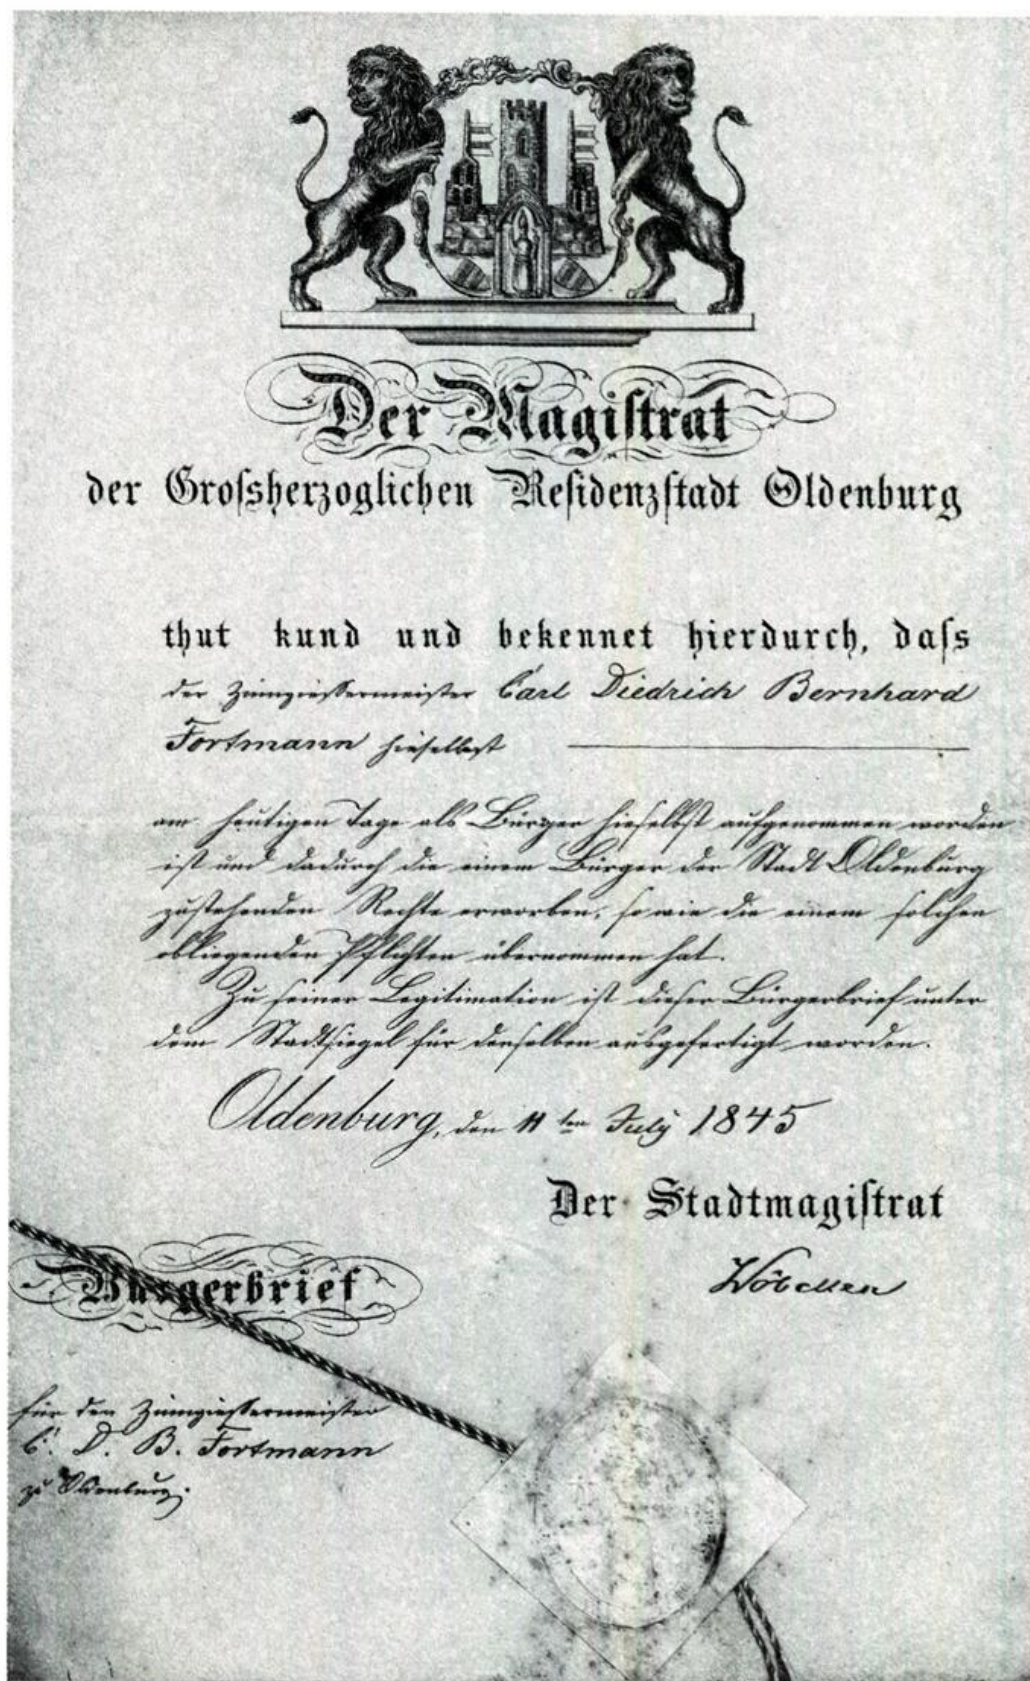 Der Magiſtrat
der Groſsherzoglichen Reſidenzſtadt Oldenburg
thut kund und bekennet hierdurch, daſs
der Zinngiessermeister Carl Diedrich Bernhard
Fortmann hieselbst
am heutigen Tage als Bürger hieselbst aufgenommen worden
ist und dadurch die einem Bürger der Stadt Oldenburg
zustehenden Rechte erworben, so wie die einem solchen
obliegenden Pflichten übernommen hat.
Zu seiner Legitimation ist dieser Bürgerbrief unter
dem Stadtsiegel für denselben ausgefertigt worden.
Oldenburg, den 11ten July 1845
Der Stadtmagiſtrat
Wöbcken
Bürgerbrief
für den Zinngiessermeister
C. D. B. Fortmann
zu Oldenburg.